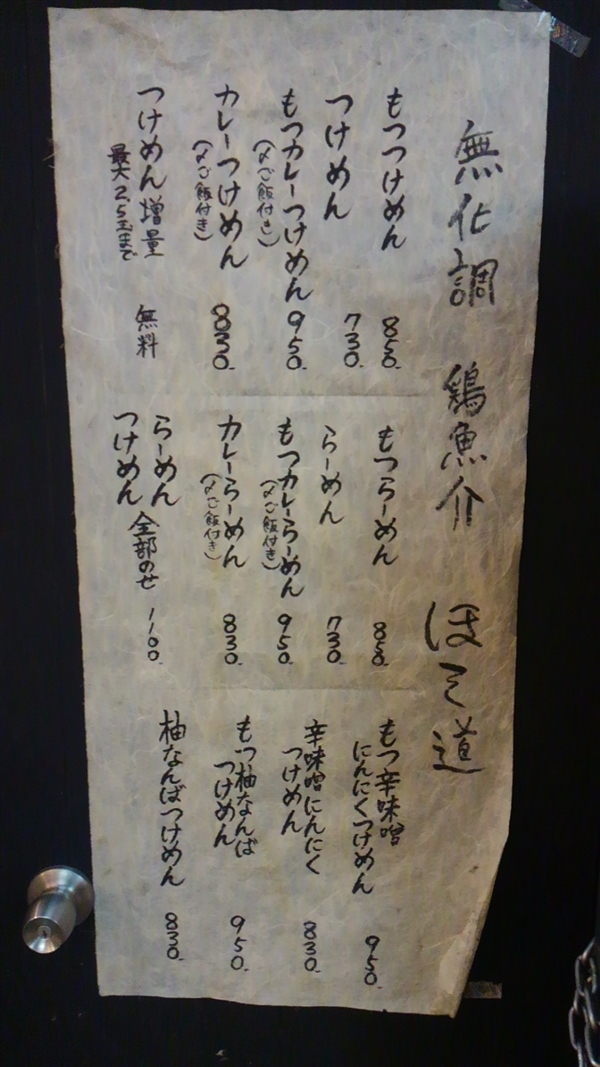 無化調 鶏魚介 ほそ道
もつつけめん 850-
つけめん 730-
もつカレーつけめん 950-
(〆ご飯付き)
カレーつけめん 830-
(〆ご飯付き)
つけめん増量 無料
最大2,5玉まで
もつらーめん 850-
らーめん 730-
もつカレーらーめん 950-
(〆ご飯付き)
カレーらーめん 830-
(〆ご飯付き)
らーめん
つけめん
全部のせ 1100-
もつ辛味噌
にんにくつけめん 950-
辛味噌にんにく
つけめん 830-
もつ柚なんば
つけめん 950-
柚なんばつけめん 830-